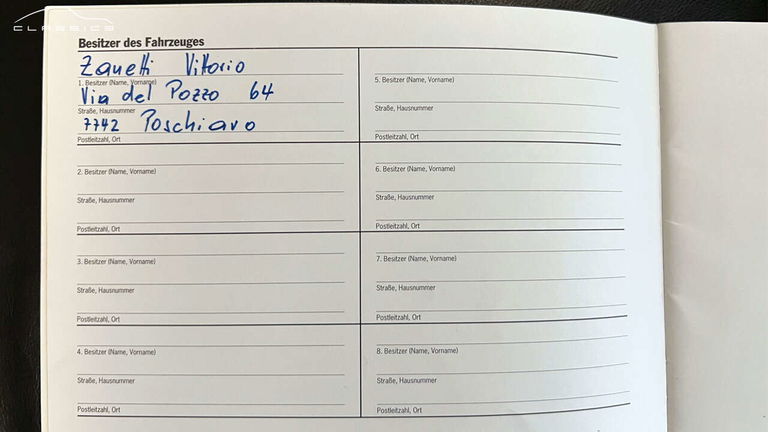 CLASSICS
Besitzer des Fahrzeuges
Zanetti Vittorio
1. Besitzer (Name, Vorname)
Via del Pozzo 64
Straße, Hausnummer
7742 Poschiavo
Postleitzahl, Ort
2. Besitzer (Name, Vorname)
Straße, Hausnummer
Postleitzahl, Ort
3. Besitzer (Name, Vorname)
Straße, Hausnummer
Postleitzahl, Ort
4. Besitzer (Name, Vorname)
Straße, Hausnummer
Postleitzahl, Ort
5. Besitzer (Name, Vorname)
Straße, Hausnummer
Postleitzahl, Ort
6. Besitzer (Name, Vorname)
Straße, Hausnummer
Postleitzahl, Ort
7. Besitzer (Name, Vorname)
Straße, Hausnummer
Postleitzahl, Ort
8. Besitzer (Name, Vorname)
Straße, Hausnummer
Postleitzahl, Ort